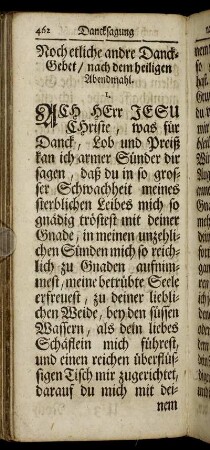 462 Dancksagung
Noch etliche andre Danck-
Gebet / nach dem heiligen
Abendmahl.
I.
ACH HErr JESU
CHriste, was für
Danck, Lob und Preiß
kan ich armer Sünder dir
sagen, daß du in so gros-
ser Schwachheit meines
sterblichen Leibes mich so
gnädig tröstest mit deiner
Gnade, in meinen unzehli-
chen Sünden mich so reich-
lich zu Gnaden aufnim-
mest, meine betrübte Seele
erfreuest, zu deiner liebli-
chen Weide, bey den süssen
Wassern, als dein liebes
Schäflein mich führest,
und einen reichen überflüs-
sigen Tisch mir zugerichtet,
darauf du mich mit dei-
nem